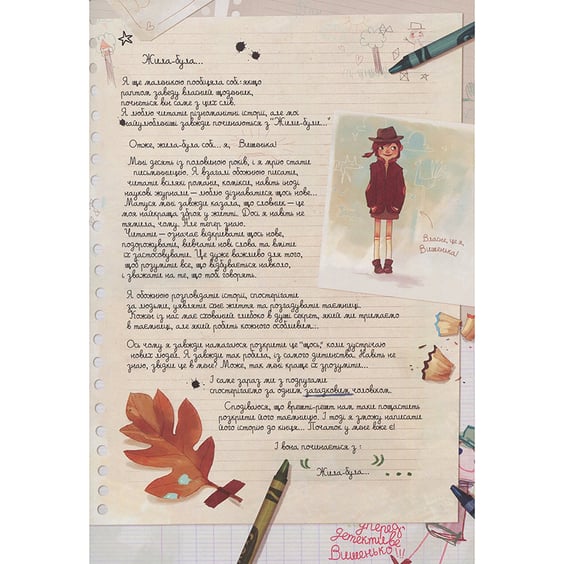 Жила-була...
Я ще маленькою пообіцяла собі: якщо
раптом заведу власний щоденник,
почнеться він саме з цих слів.
Я люблю читати різноманітні історії, але мої
найулюбленіші завжди починаються з "Жили-були..."
Отже, жила-була собі... я, Вишенька!
Мені десять із половиною років, і я мрію стати
письменницею. Я взагалі обожнюю писати,
читати всілякі романи, комікси, навіть іноді
наукові журнали — люблю дізнаватися щось нове...
Матуся мені завжди казала, що словник — це
моя найкраща зброя у житті. Досі я навіть не
тямила, чому. Але тепер знаю.
Читати — означає відкривати щось нове,
подорожувати, вивчати нові слова та вміти
їх застосовувати. Це дуже важливо для того,
щоб розуміти все, що відбувається навколо,
і зважати на те, що тобі говорять.
Власне, це я,
Вишенька!
Я обожнюю розповідати історії, спостерігати
за людьми, уявляти їхнє життя та розгадувати таємниці.
Кожен із нас має схований глибоко в душі секрет, який ми тримаємо
в таємниці, але який робить кожного особливим...
Ось чому я завжди намагаюся розкрити це "щось", коли зустрічаю
нових людей. Я завжди так робила, із самого дитинства. Навіть не
знаю, звідки це в мене? Може, так мені краще їх зрозуміти...
І саме зараз ми з подругами
спостерігаємо за одним загадковим чоловіком.
Сподіваюся, що врешті-решт нам таки пощастить
розкрити його таємницю. І тоді я зможу написати
його історію до кінця... Початок у мене вже є!
І вона починається з:
"Жила-була..."
Уперед,
детективе
Вишенько!!!